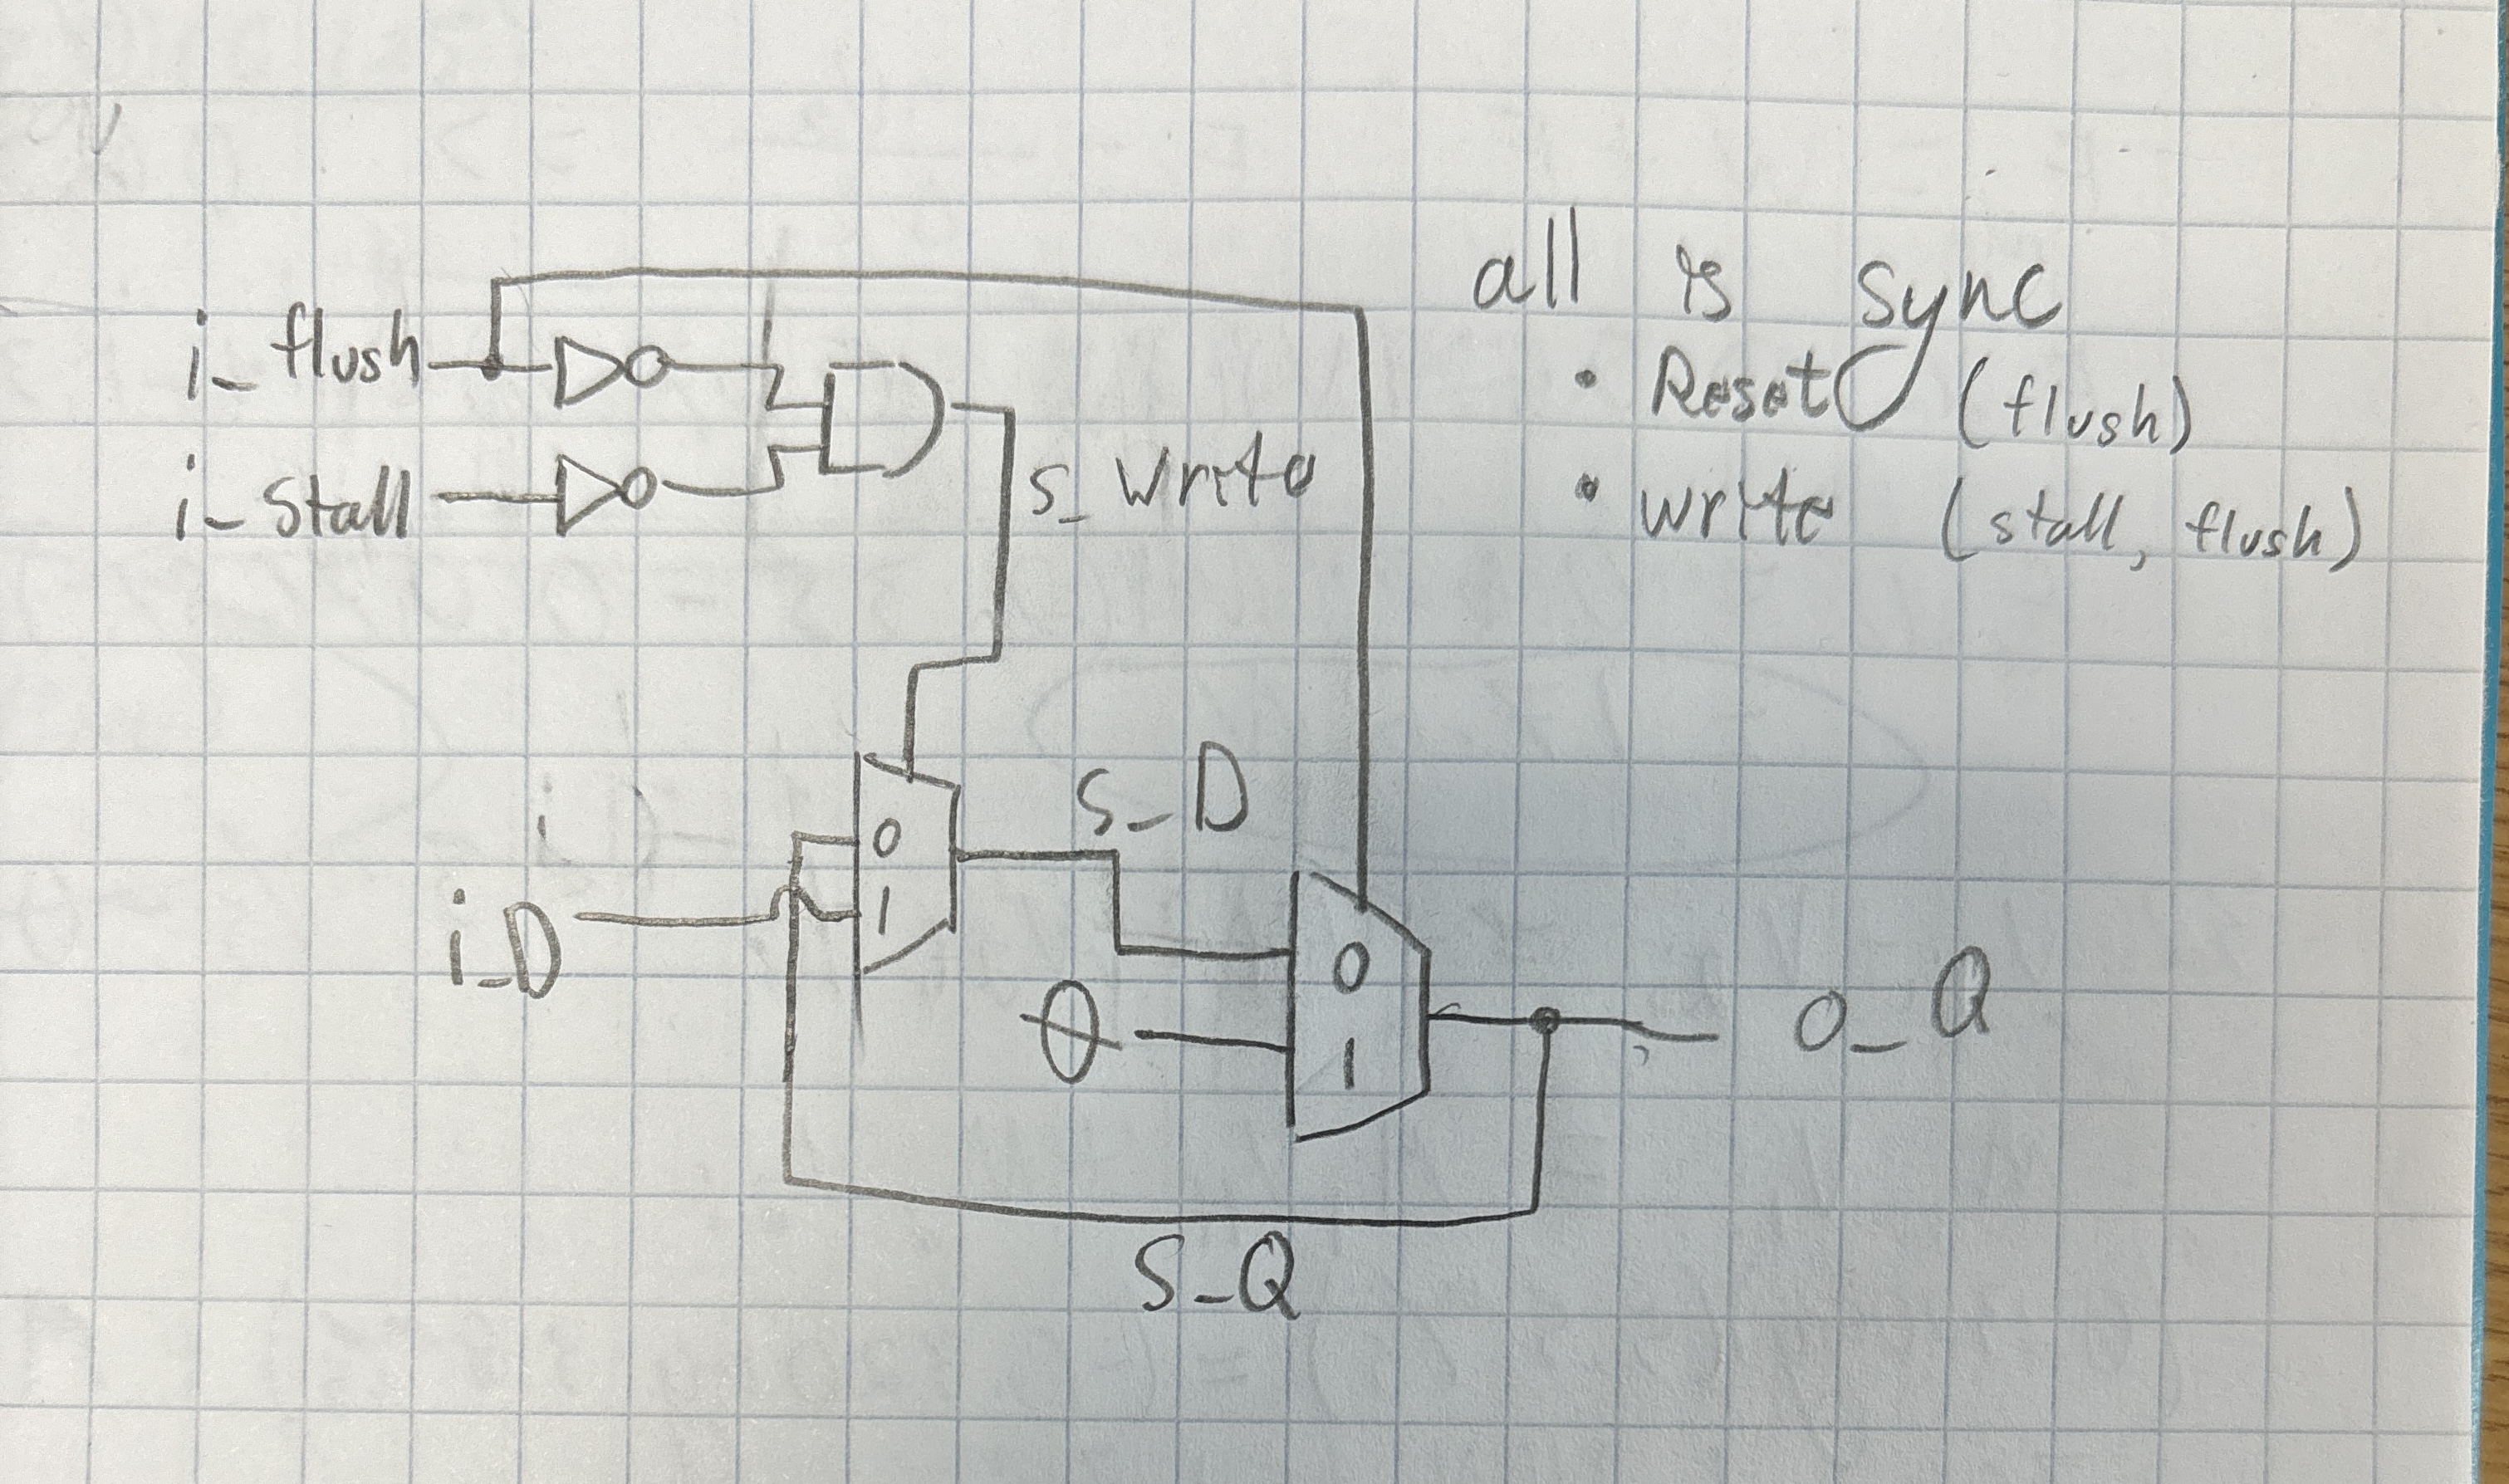 all is sync
• Reset (flush)
• write (stall, flush)
i_flush
i_stall
s_write
s_D
0
1
i_D
0
0
1
o_Q
S_Q